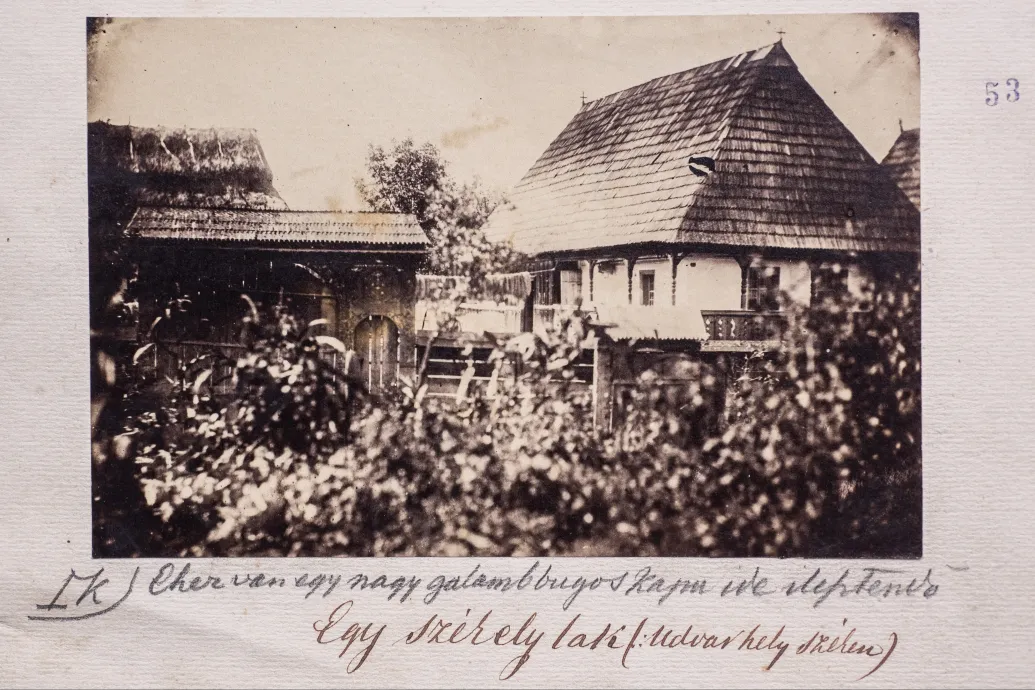 53
IK) Ehez van egy nagy galambbugos kapu ide
Egy székely lak (: Udvarhely szélen)